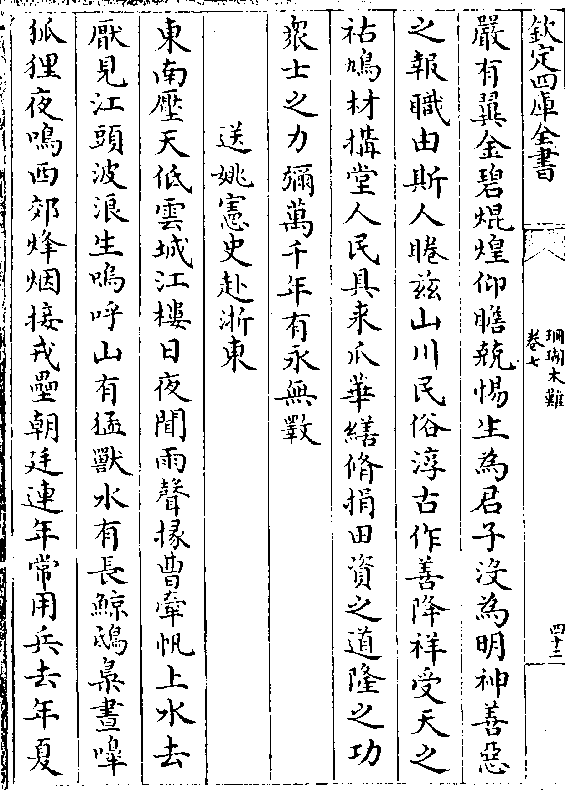 欽定四庫全書
珊瑚木難
卷七
四十三
嚴有翼金碧焜煌仰瞻兢惕生為君子沒為明神善惡
之報職由斯人睠兹山川民俗淳古作善降祥受天之
祜鳩材搆堂人民具來爪華繕脩捐田資之道隆之功
衆士之力彌萬千年有永無斁
送姚憲史赴浙東
東南壓天低雲城江樓日夜聞雨聲掾曹牽帆上水去
厭見江頭波浪生嗚呼山有猛獸水有長鯨鴟梟晝嘷
狐狸夜鳴西郊烽烟接戎壘朝廷連年常用兵去年夏